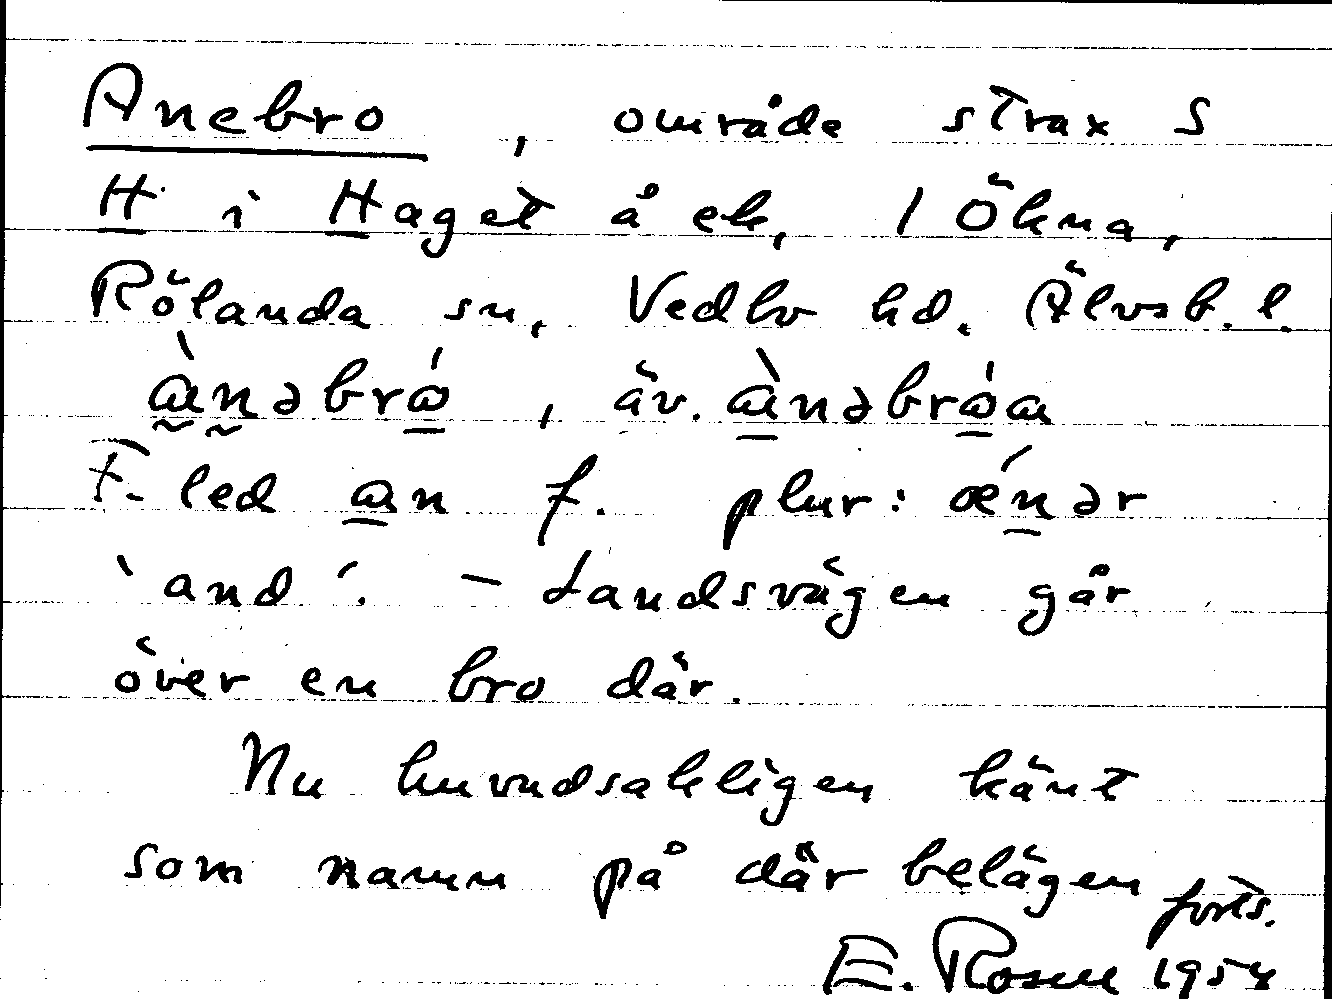 Anebro, område strax S
H i Haget å ek, 1 Ökna,
Rölanda sn, Vedbo hd. Älvsb. l.
ànəbró, äv. ànəbróa
F-led an f. plur: ǽnər
`and´. – Landsvägen går
över en bro där.
Nu huvudsakligen känt
som namn på där belägen forts.
E. Rosell 1954